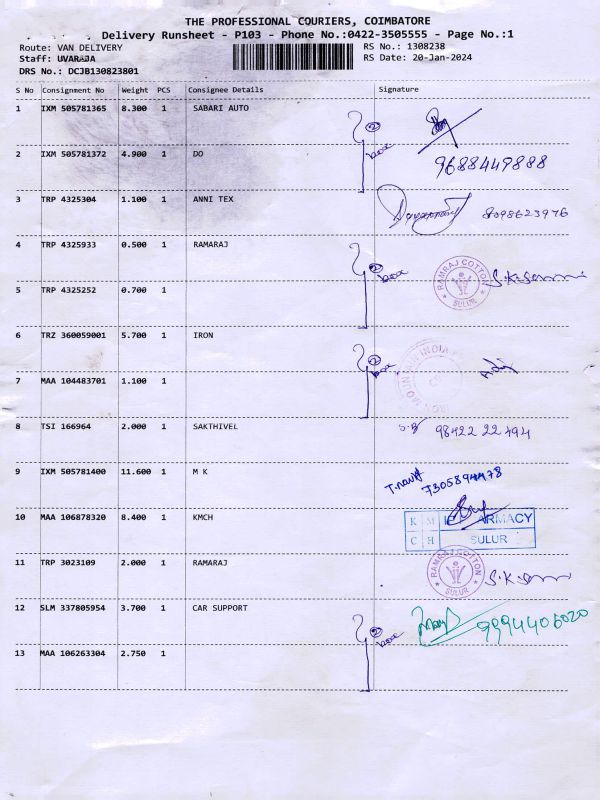 THE PROFESSIONAL COURIERS, COIMBATORE
Delivery Runsheet - P103 - Phone No.:0422-3505555 - Page No.:1
Route: VAN DELIVERY RS No.: 1308238
Staff: UVARAJA RS Date: 20-Jan-2024
DRS No.: DCJB130823801
S No Consignment No Weight PCS Consignee Details Signature
1 IXM 505781365 8.300 1 SABARI AUTO
2 IXM 505781372 4.900 1 DO 9688449888
3 TRP 4325304 1.100 1 ANNI TEX 8098623976
4 TRP 4325933 0.500 1 RAMARAJ RAMRAJ COTTON SULUR
5 TRP 4325252 0.700 1
6 TRZ 360059001 5.700 1 IRON
7 MAA 104483701 1.100 1
8 TSI 166964 2.000 1 SAKTHIVEL 98422 22494
9 IXM 505781400 11.600 1 M K 7305894478
10 MAA 106878320 8.400 1 KMCH K M C H SULUR
11 TRP 3023109 2.000 1 RAMARAJ RAMRAJ COTTON SULUR
12 SLM 337805954 3.700 1 CAR SUPPORT 9994406020
13 MAA 106263304 2.750 1